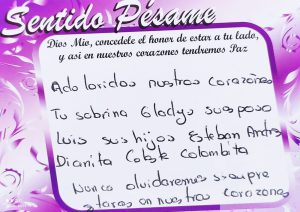 Sentido Pésame
Dios Mio, concedele el honor de estar a tu lado,
y asi en nuestros corazones tendremos Paz
Adoloridos nuestros corazones
Tu sobrina Gladys su esposo
Luis sus hijos Esteban Andres
Dianita Colombita
Nunca olvidaremos siempre
estaras en nuestros corazones